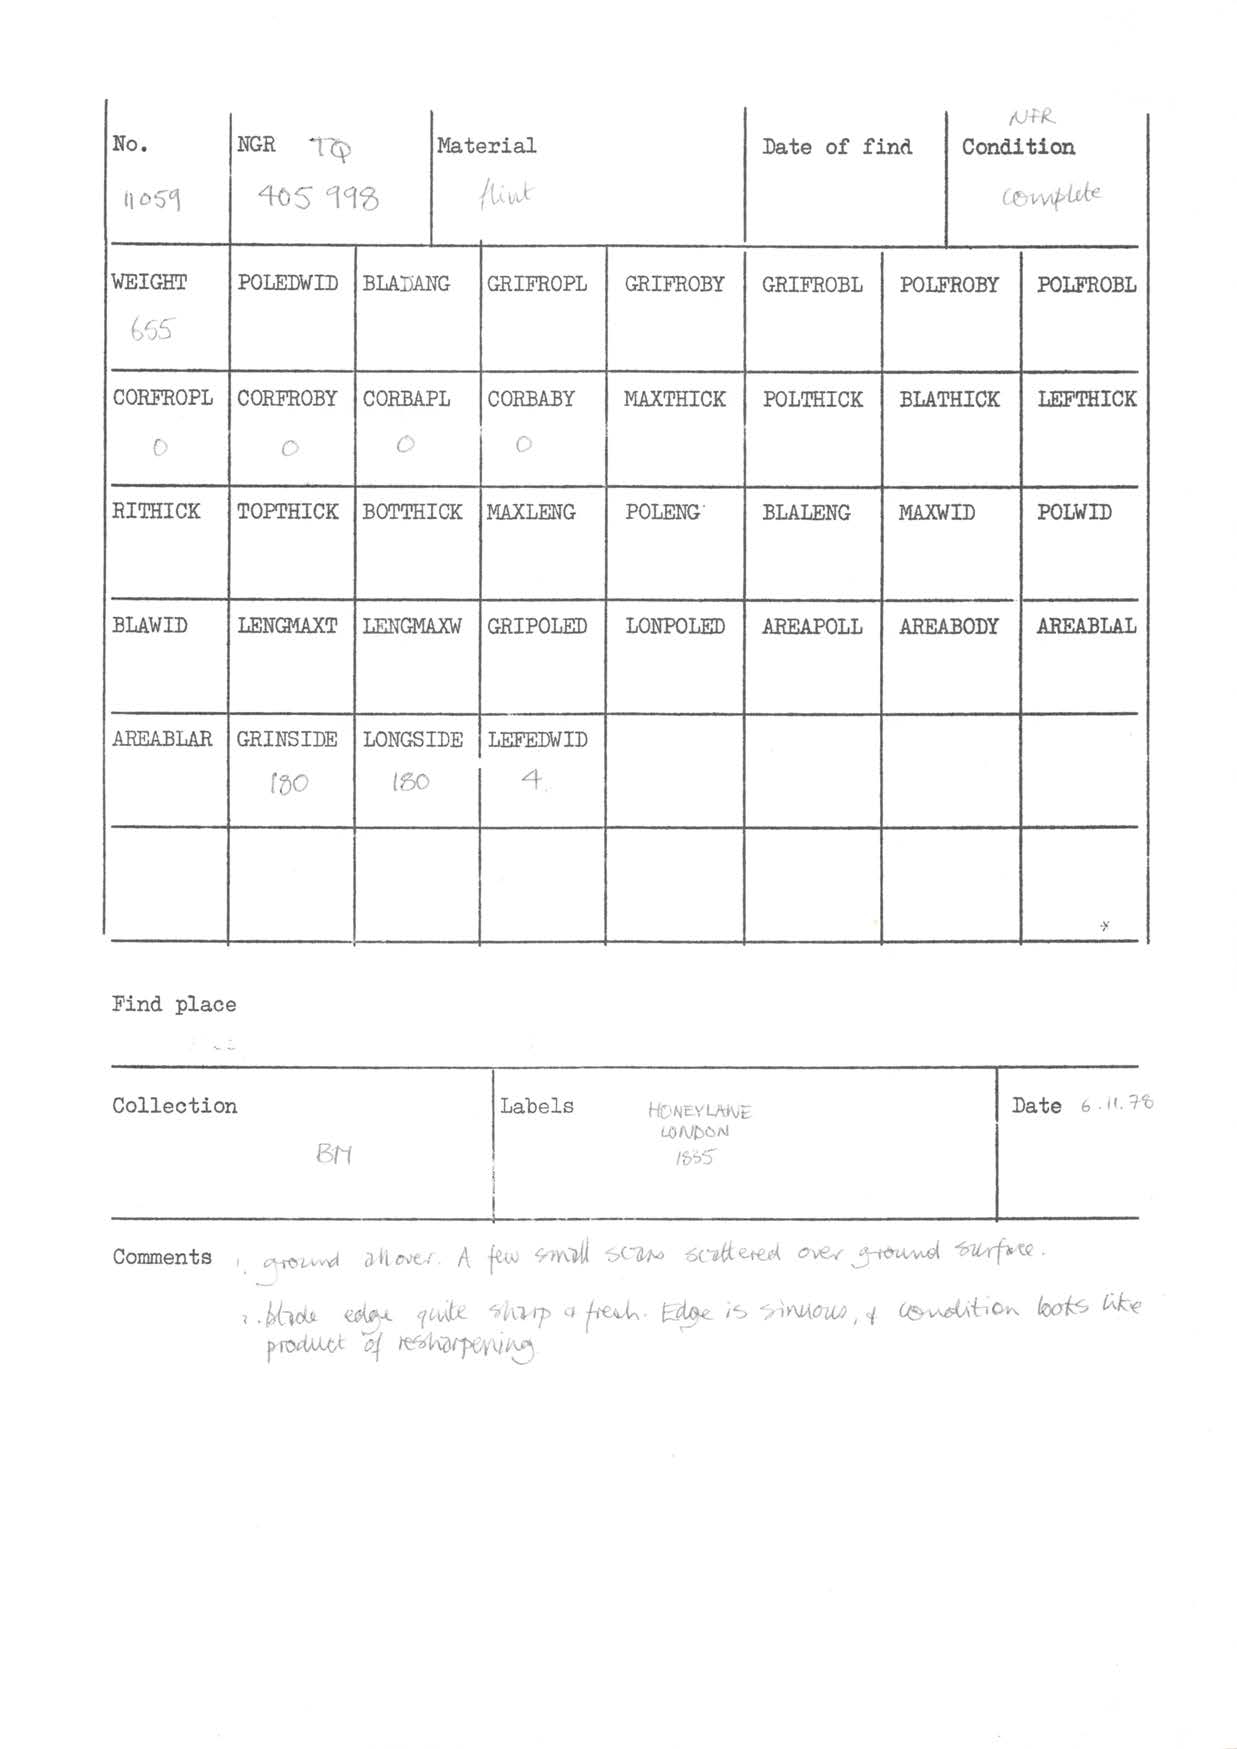 NFR
No. NGR TQ Material Date of find Condition
11059 405 998 flint complete
WEIGHT POLEDWID BLADANG GRIFROPL GRIFROBY GRIFROBL POLFROBY POLFROBL
655
CORFROPL CORFROBY CORBAPL CORBABY MAXTHICK POLTHICK BLATHICK LEFTHICK
0 0 0 0
RITHICK TOPTHICK BOTTHICK MAXLENG POLENG BLALENG MAXWID POLWID
BLAWID LENGMAXT LENGMAXW GRIPOLED LONPOLED AREAPOLL AREABODY AREABLAL
AREABLAR GRINSIDE LONGSIDE LEFEDWID
180 180 4.
*
Find place
Collection Labels HONEYLANE Date 6.11.78
LONDON
BM 1835
Comments 1. ground all over. A few small scars scattered over ground surface.
2. blade edge quite sharp & fresh. Edge is sinuous, & condition looks like
product of resharpening